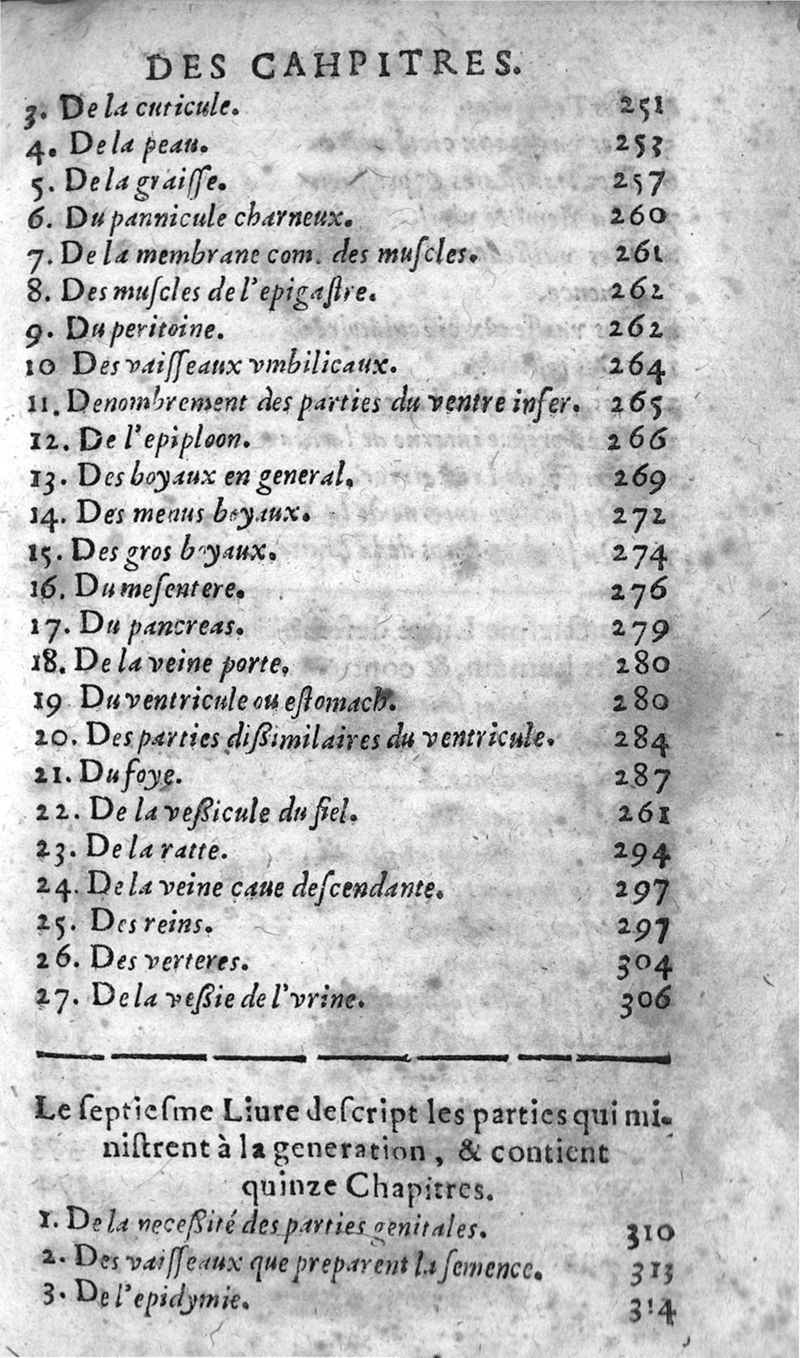 DES CAHPITRES.
3. De la cuticule. 251
4. De la peau. 253
5. De la graiſſe. 257
6. Du pannicule charneux. 260
7. De la membrane com. des muſcles. 261
8. Des muſcles de l'epigaſtre. 262
9. Du peritoine. 262
10 Des vaiſſeaux vmbilicaux. 264
11. Denombrement des parties du ventre infer. 265
12. De l'epiploon. 266
13. Des boyaux en general. 269
14. Des menus boyaux. 272
15. Des gros boyaux. 274
16. Du meſentere. 276
17. Du pancreas. 279
18. De la veine porte. 280
19 Du ventricule ou eſtomach. 280
20. Des parties diſsimilaires du ventricule. 284
21. Du foye. 287
22. De la veſsicule du fiel. 261
23. De la ratte. 294
24. De la veine caue deſcendante. 297
25. Des reins. 297
26. Des verteres. 304
27. De la veſsie de l'vrine. 306
Le ſeptieſme Liure deſcript les parties qui mi-
niſtrent à la generation, & contient
quinze Chapitres.
1. De la neceſsité des parties genitales. 310
2. Des vaiſſeaux que preparent la ſemence. 313
3. De l'epidymie. 314